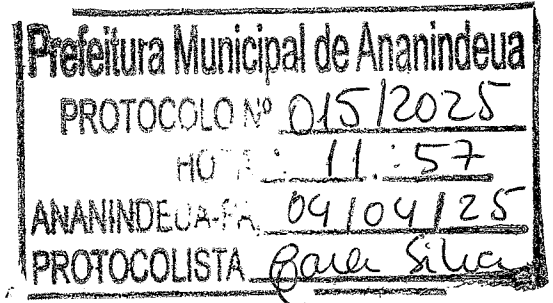 Prefeitura Municipal de Ananindeua
PROTOCOLO Nº 015/2025
HORA: 11:57
ANANINDEUA-PA, 04/04/25
PROTOCOLISTA Silva